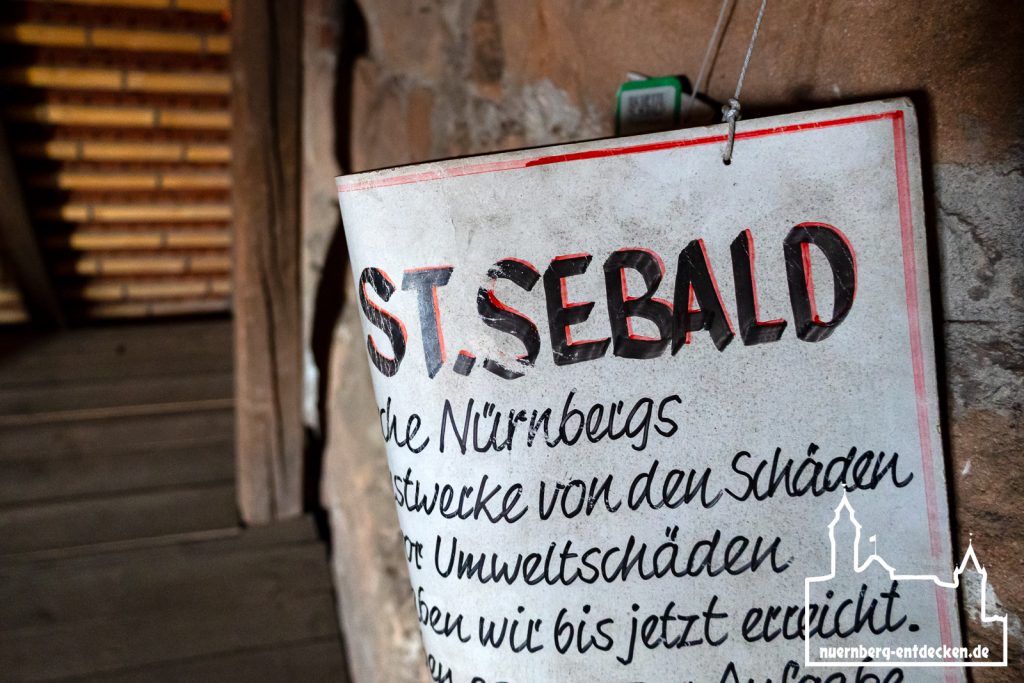 ST. SEBALD
che Nürnbergs
stwerke von den Schäden
or Umweltschäden
ben wir bis jetzt erreicht.
Aufgabe
nuernberg-entdecken.de